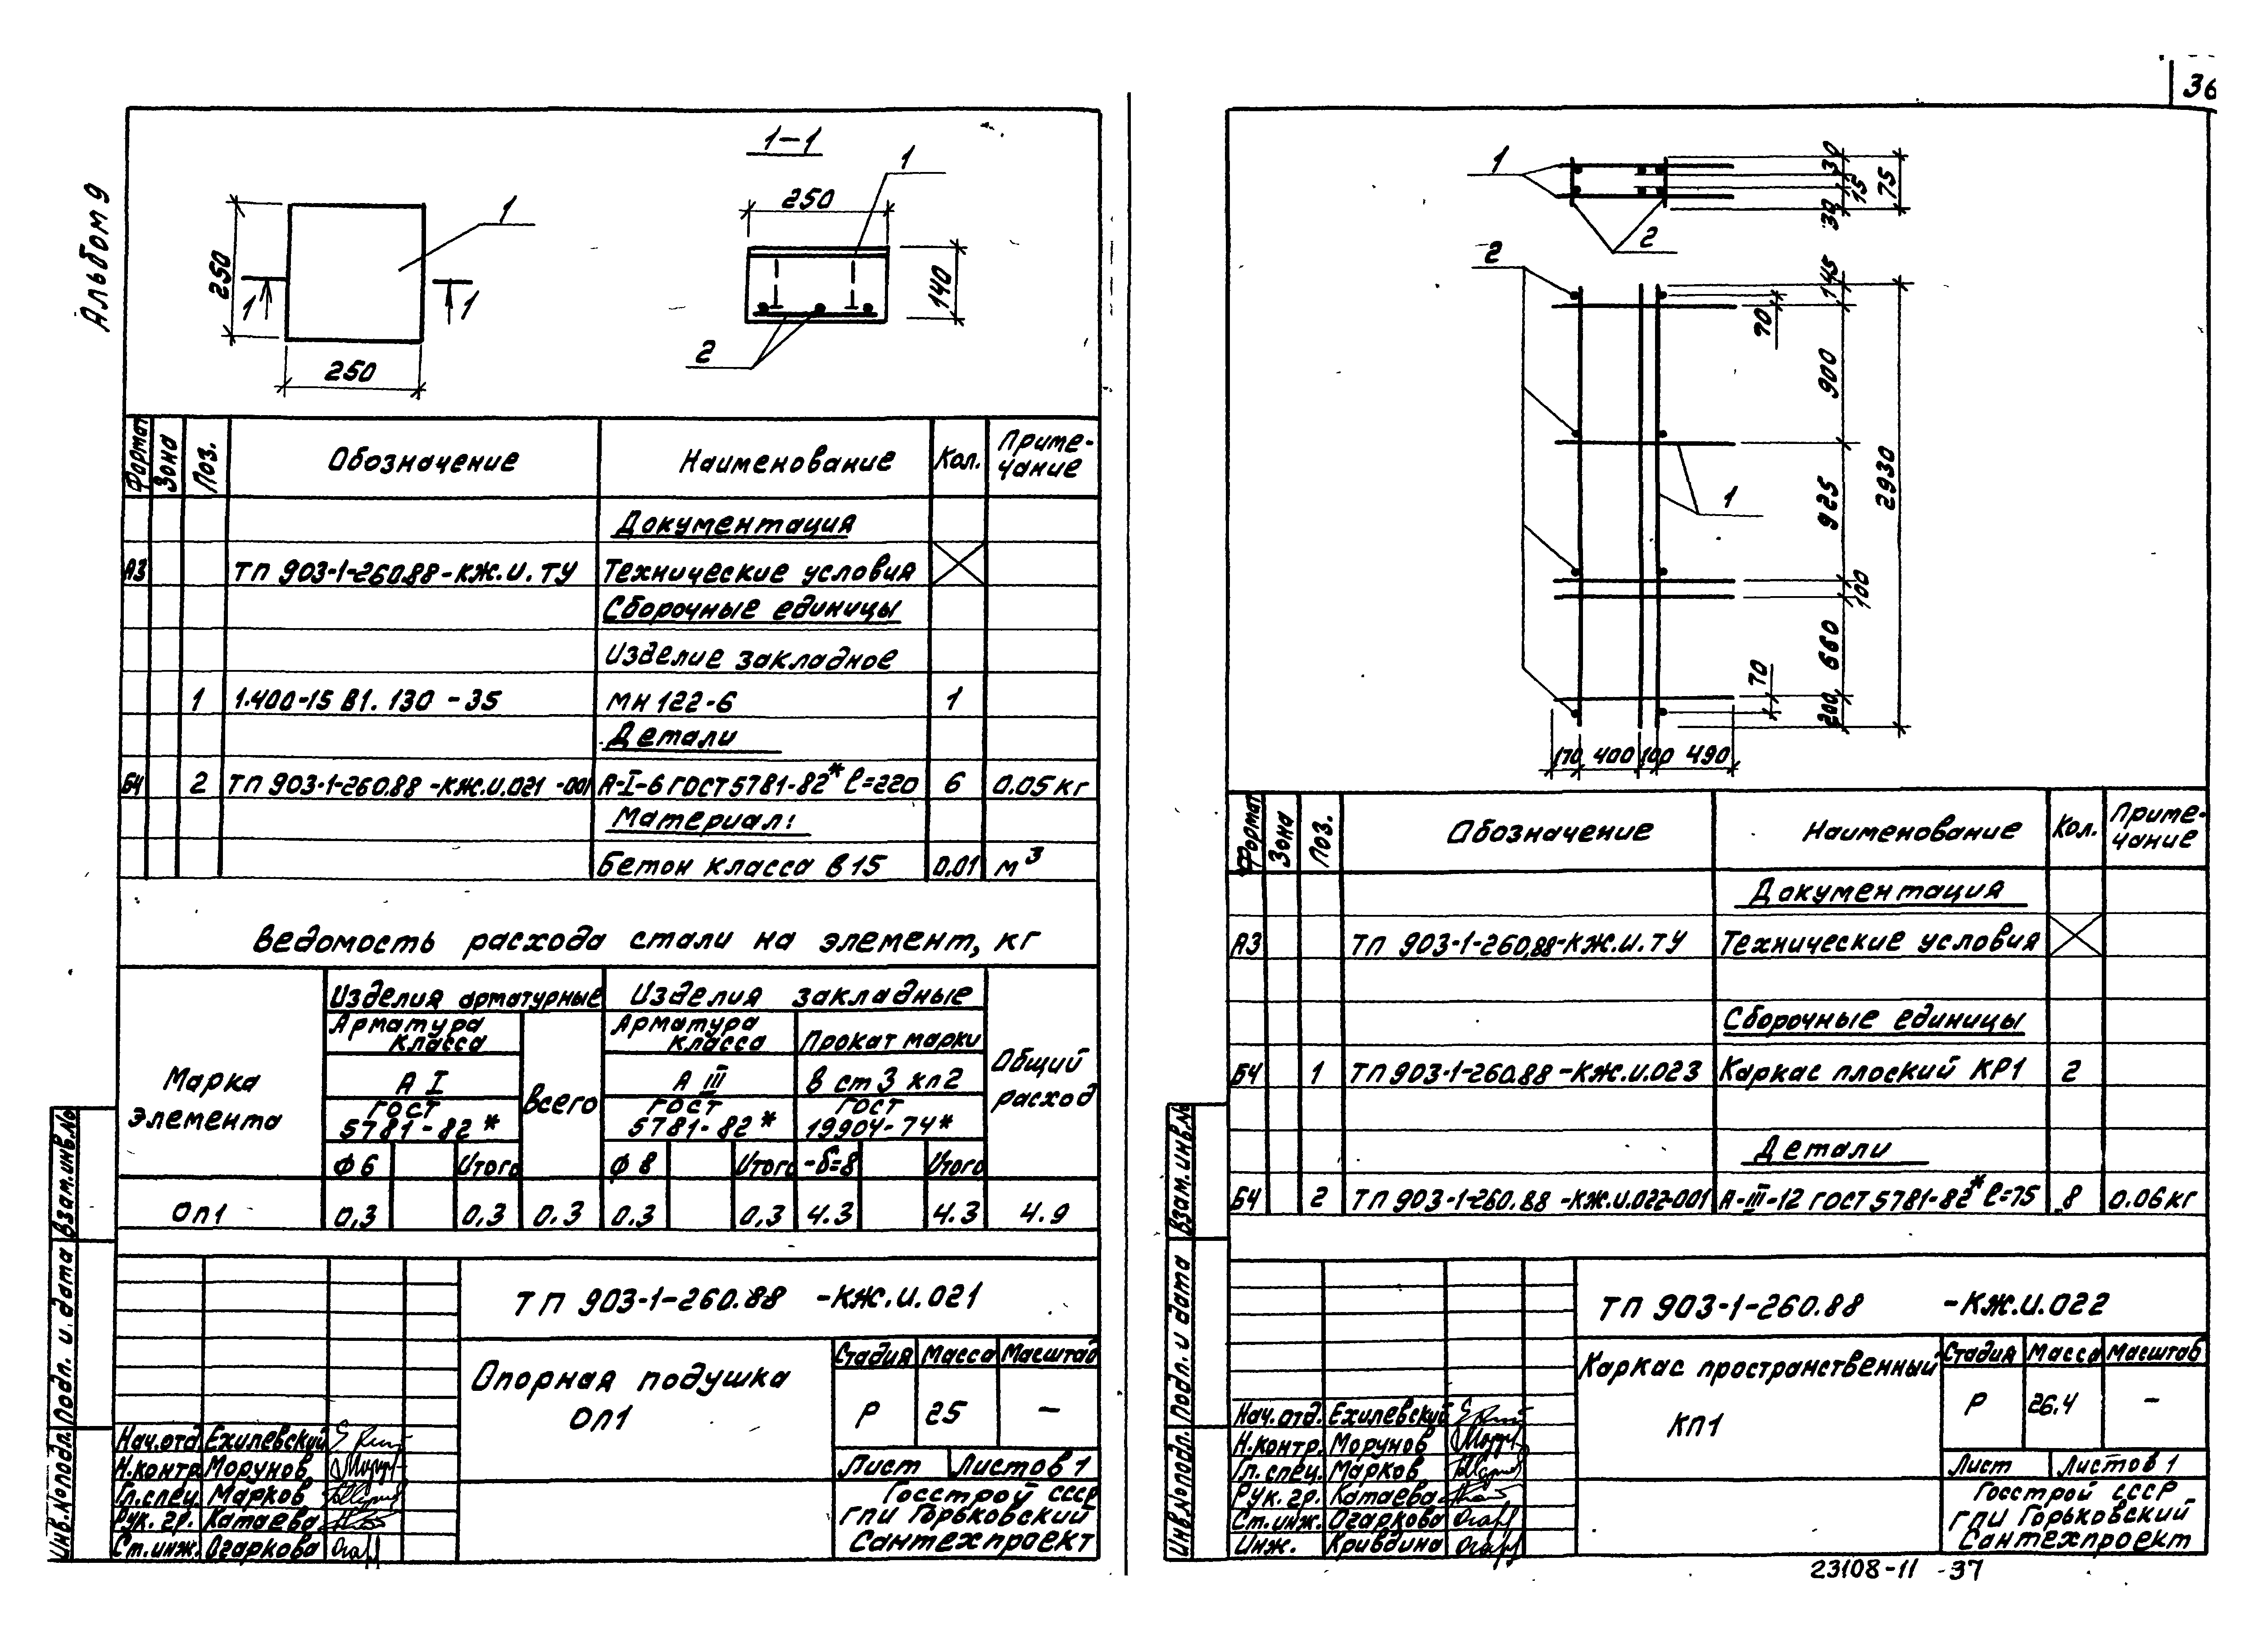 36
Альбом 9
1-1
1
250
250
1
1
250
1
140
2
Формат Зона Поз. Обозначение Наименование Кол. Приме-
чание
Документация
А3 ТП 903-1-260.88-КЖ.И.ТУ Технические условия
Сборочные единицы
Изделие закладное
1 1.400-15 В1.130-35 МН 122-6 1
Детали
БЧ 2 ТП 903-1-260.88-КЖ.И.021-001 А-I-6 ГОСТ 5781-82* ℓ=220 6 0.05 кг
Материал:
Бетон класса В15 0,01 м³
Ведомость расхода стали на элемент, кг
Марка
элемента
Изделия арматурные Изделия закладные
Арматура
класса
Арматура
класса
Прокат марки
Всего
Общий
расход
А I А III В ст 3 кп2
ГОСТ
5781-82*
ГОСТ
5781-82*
ГОСТ
19904-74*
Ф6 Итого Ф8 Итого -δ=8 Итого
ОП1 0,3 0,3 0.3 0.3 0,3 4.3 4.3 4.9
ТП 903-1-260.88 -КЖ.И.021
Опорная подушка
ОП1
Стадия Масса Масштаб
Р 25 —
Лист Листов 1
Госстрой СССР
ГПИ Горьковский
Сантехпроект
Нач.отд. Ехилевский
Н.контр. Морунов
Гл.спец. Марков
Рук. гр. Катаева
Ст.инж. Огаркова
Взам.инв.№
Подп. и дата
Инв.№ подл.
1
2
30
15
30
75
2
1
145
70
900
925
100
660
70
200
2930
170 400 100 490
Формат Зона Поз. Обозначение Наименование Кол. Приме-
чание
Документация
А3 ТП 903-1-260.88-КЖ.И.ТУ Технические условия
Сборочные единицы
БЧ 1 ТП 903-1-260.88-КЖ.И.023 Каркас плоский КР1 2
Детали
БЧ 2 ТП 903-1-260.88-КЖ.И.022-001 А-III-12 ГОСТ 5781-82* ℓ=75 8 0.06 кг
ТП 903-1-260.88 -КЖ.И.022
Каркас пространственный
КП1
Стадия Масса Масштаб
Р 26.4 —
Лист Листов 1
Госстрой СССР
ГПИ Горьковский
Сантехпроект
Нач.отд. Ехилевский
Н.контр. Морунов
Гл. спец. Марков
Рук. гр. Катаева
Ст. инж. Огаркова
Инж. Кривдина
Взам.инв.№
Подп. и дата
Инв.№ подл.
23108-11 -37